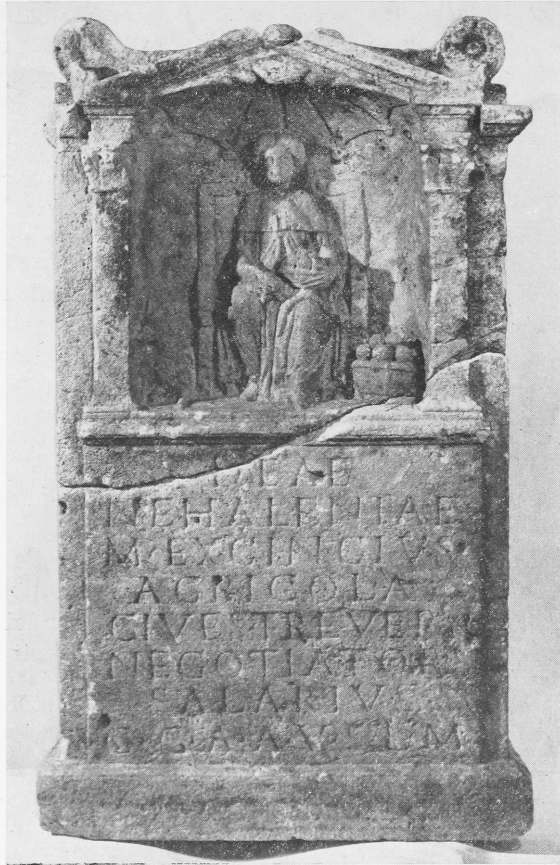 DEAE
NEHALENIAE
M·EXGINGIVS
AGRICOLA
CIVES TREVER
NEGOTIATOR
SALARIVS
C·C·A·A·V·S·L·M